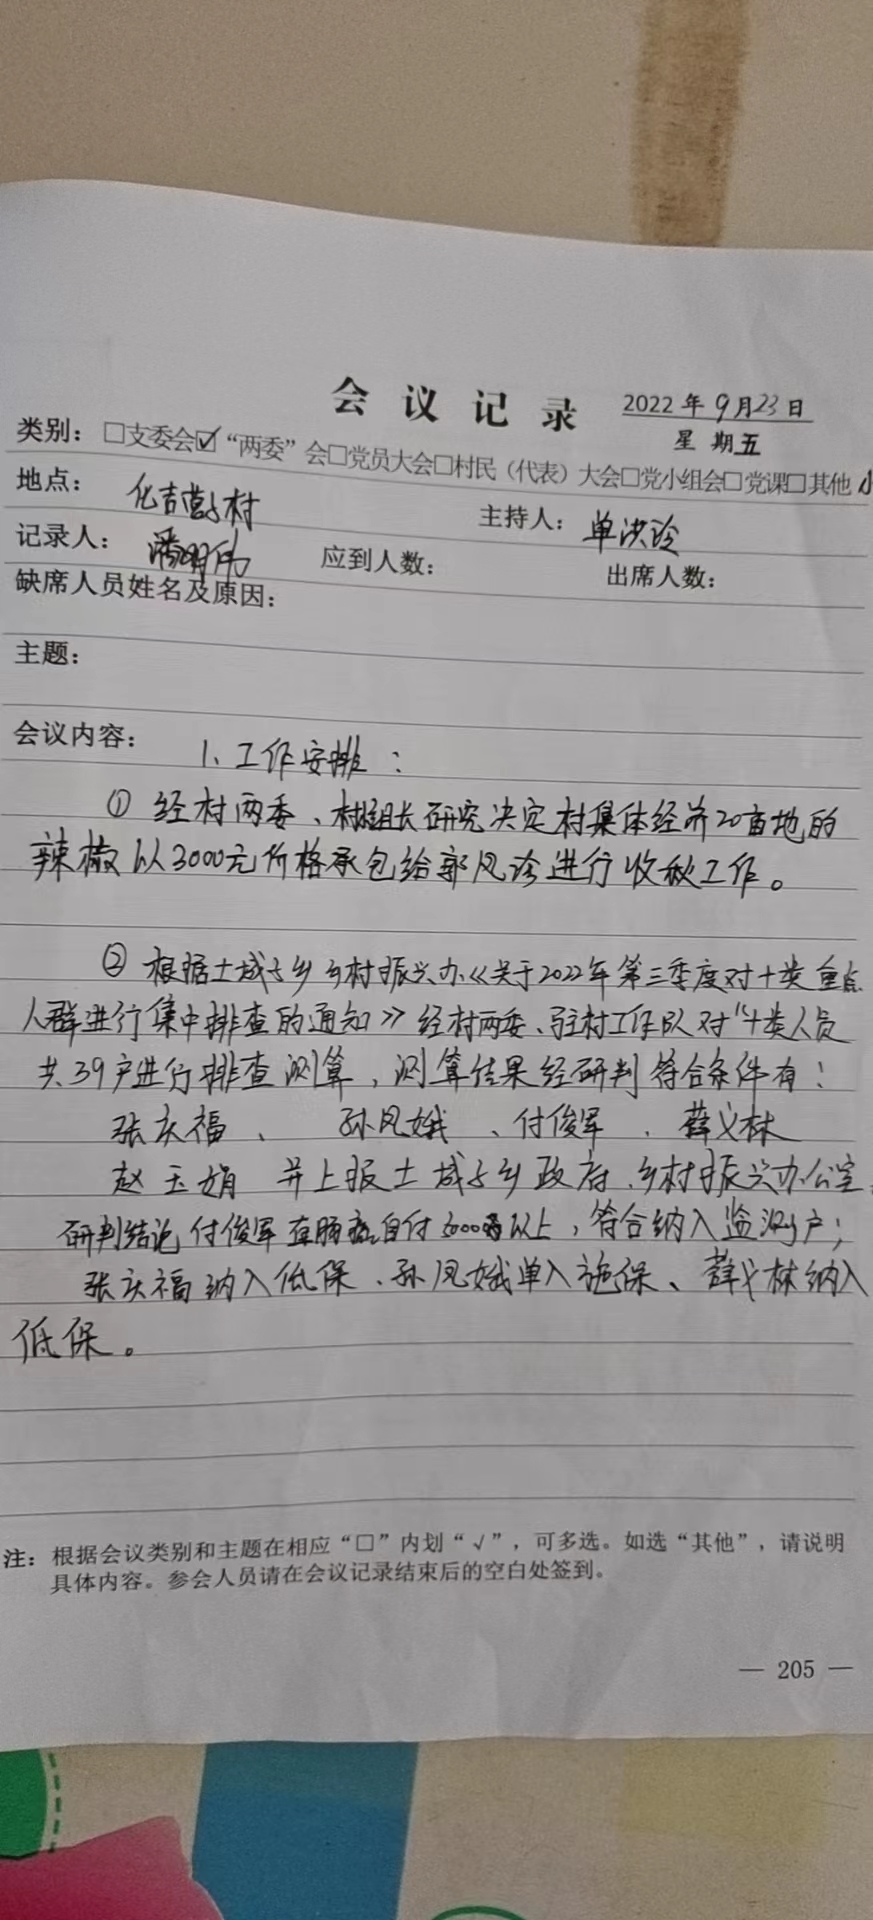 会议记录 2022年9月23日
星期五
类别：□支委会☑“两委”会□党员大会□村民（代表）大会□党小组会□党课□其他
地点：化吉营子村 主持人：单洪玲
记录人：潘明伟 应到人数： 出席人数：
缺席人员姓名及原因：
主题：
会议内容： 1、工作安排：
① 经村两委、村组长研究决定村集体经济20亩地的
辣椒以3000元价格承包给郭凤珍进行收秋工作。
② 根据土城子乡乡村振兴办《关于2022年第三季度对十类重点
人群进行集中排查的通知》经村两委、驻村工作队对“十类人员
共39户进行排查测算，测算结果经研判符合条件有：
张庆福、 孙凤娥、付俊军、薛义林
赵玉娟 并上报土城子乡政府、乡村振兴办公室
研判结论付俊军直肠癌自付 以上，符合纳入监测户；
张庆福纳入低保、孙凤娥单入施保、薛义林纳入
低保。
注：根据会议类别和主题在相应“□”内划“√”，可多选。如选“其他”，请说明
具体内容。参会人员请在会议记录结束后的空白处签到。
— 205 —